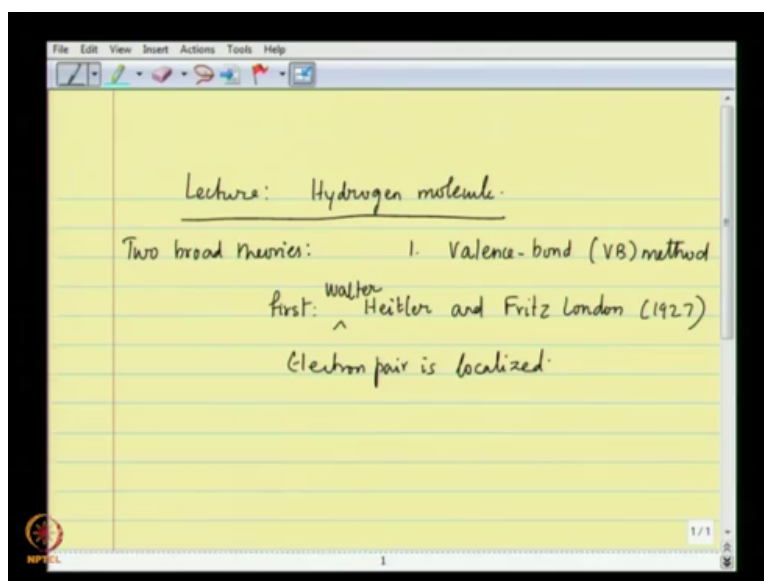 File Edit View Insert Actions Tools Help
Lecture: Hydrogen molecule.
Two broad theories: 1. Valence-bond (VB) method
first: Walter Heitler and Fritz London (1927)
Electron pair is localized.
1/1
1
NPTEL